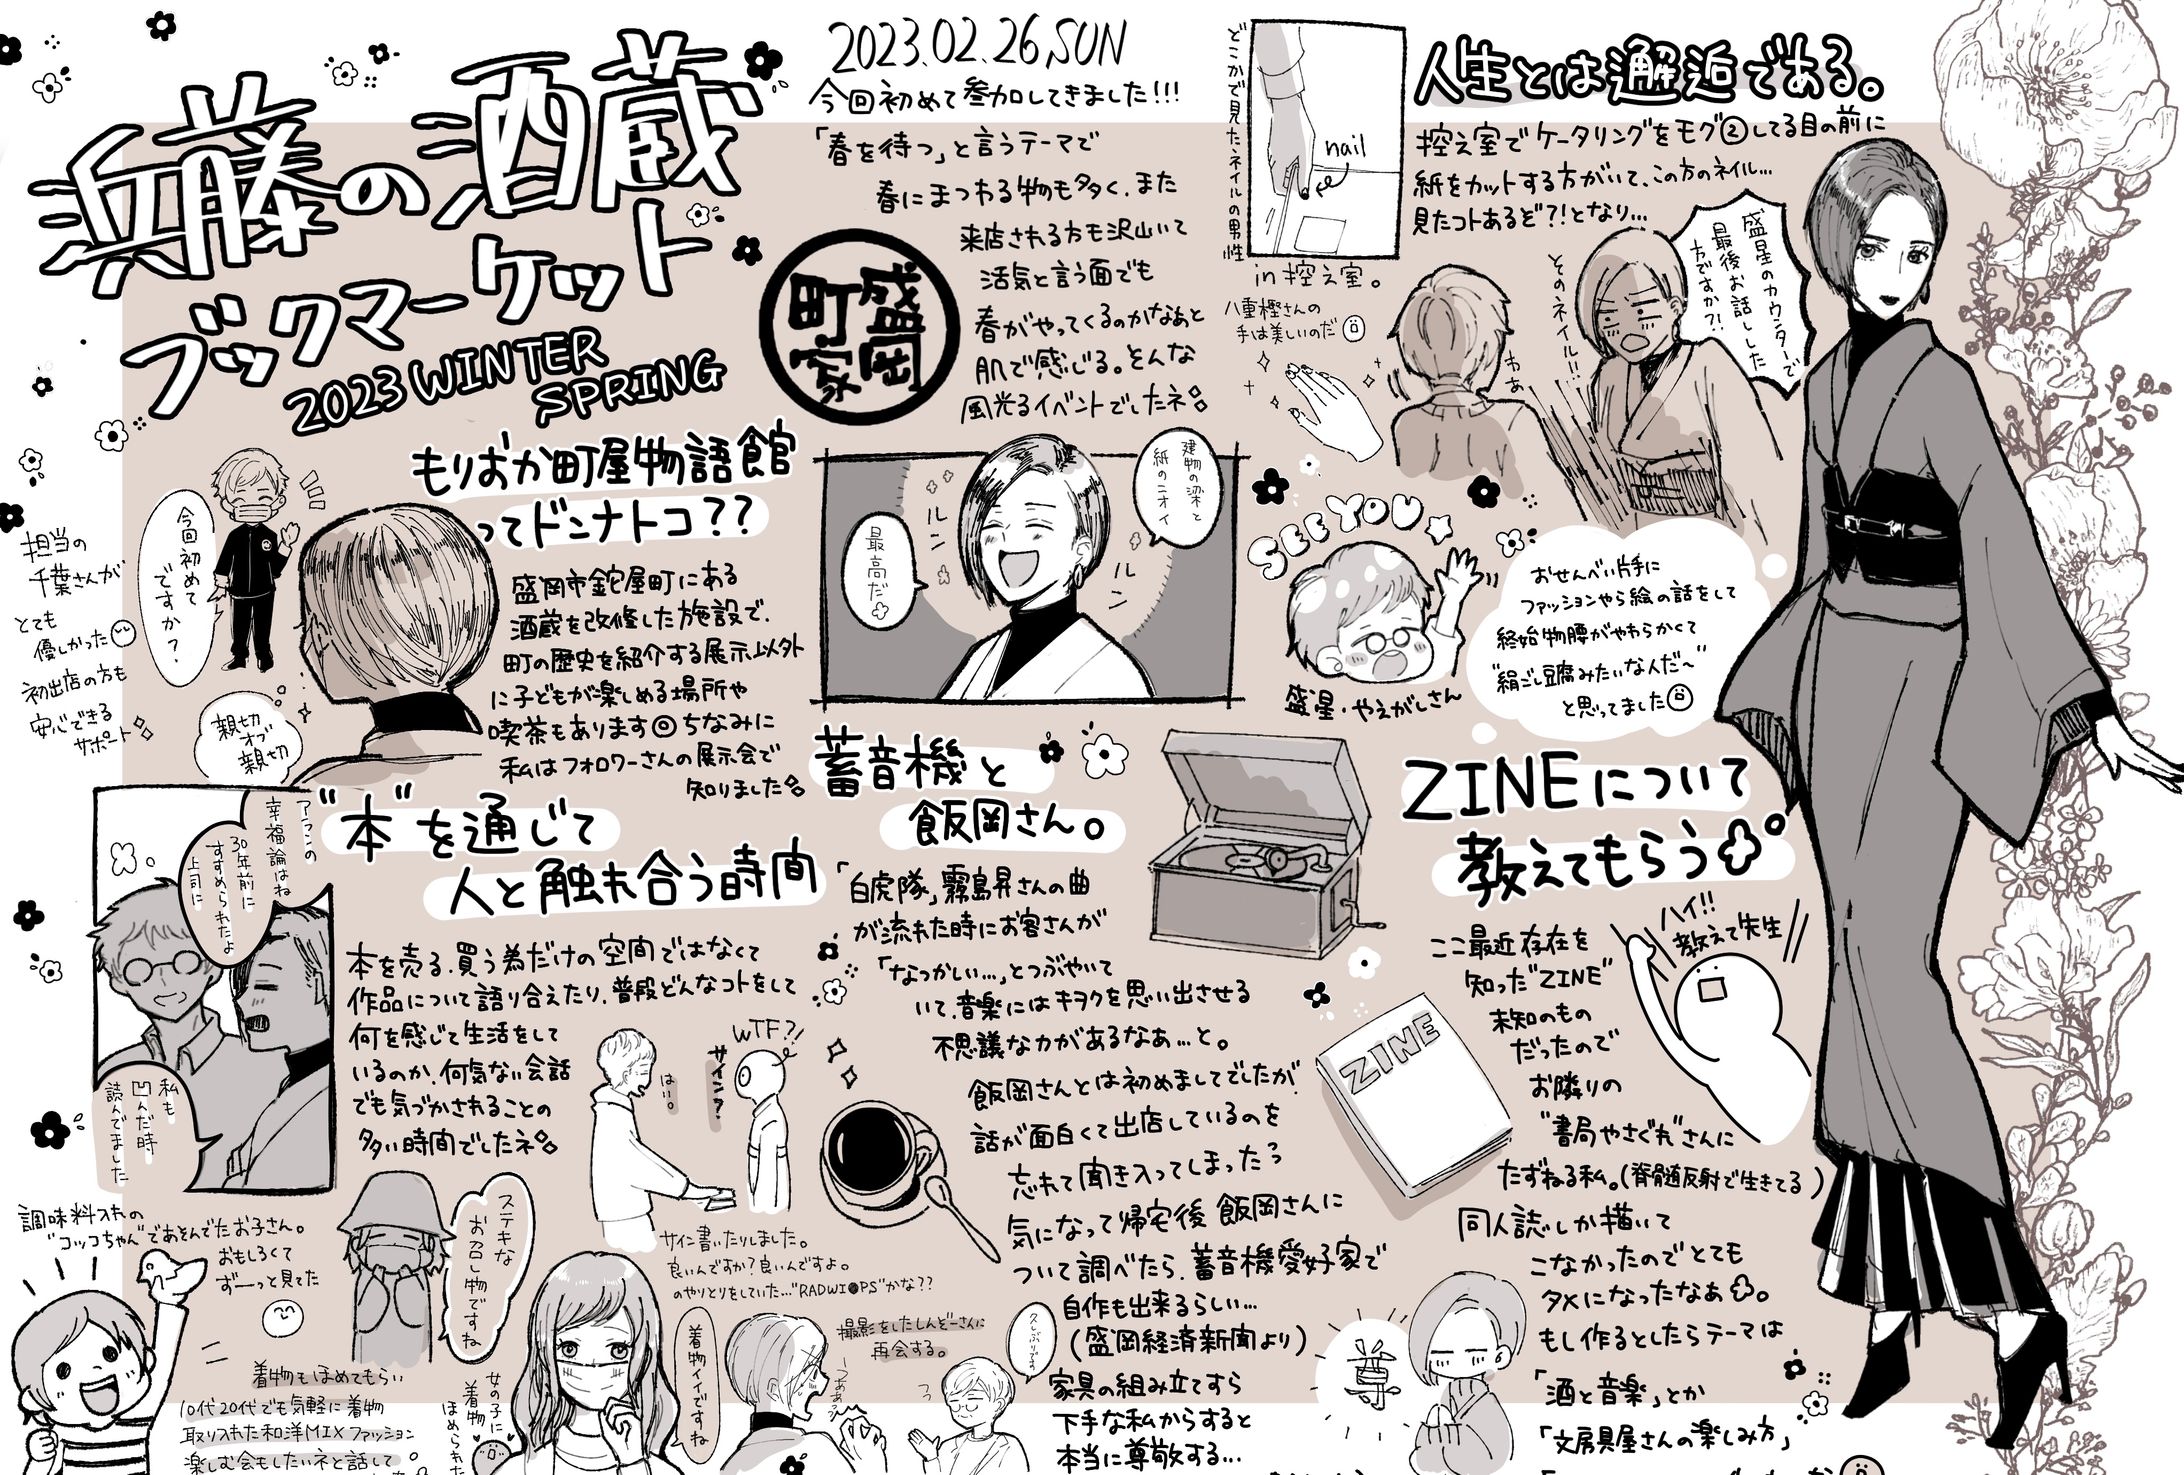 浜藤の酒蔵
ブックマーケット
2023 WINTER
SPRING
2023.02.26.SUN
今回初めて参加してきました!!!
「春を待つ」と言うテーマで
春にまつわる物も多く、また
来店される方も沢山いて
活気と言う面でも
春がやってくるのかなぁと
肌で感じる。そんな
風光るイベントでしたネ
盛岡
町家
どこかで見たネイルの男性
nail
in 控え室。
八重樫さんの
手は美しいのだ
人生とは邂逅である。
控え室でケータリングをモグ②してる目の前に
紙をカットする方がいて、この方のネイル…
見たコトあるぞ?!となり…
そのネイル!!
わぁ
盛星のカウンターで
最後お話しした
方ですか?!
SEE YOU☆
盛星・やえがしさん
おせんべい片手に
ファッションやら絵の話をして
終始物腰がやわらかくて
"絹ごし豆腐みたいな人だ〜"
と思ってました
もりおか町屋物語館
ってドンナトコ??
盛岡市鉈屋町にある
酒蔵を改修した施設で、
町の歴史を紹介する展示以外
に子どもが楽しめる場所や
喫茶もあります◎ちなみに
私はフォロワーさんの展示会で
知りました
今回初めて
ですか?
担当の
千葉さんが
とても
優しかった
初出店の方も
安心できる
サポート
親切
オブ
親切
建物の梁と
紙のニオイ
最高だ
ルン
ルン
"本"を通じて
人と触れ合う時間
アランの
幸福論はね
30年前に
すすめられたよ
上司に
私も
凹んだ時
読んでました
本を売る、買う為だけの空間ではなくて
作品について語り合えたり、普段どんなコトをして
何を感じて生活をして
いるのか、何気ない会話
でも気づかされることの
多い時間でしたネ
WTF?!
サイン?
はい。
サイン書いたりしました。
良いんですか?良いんですよ。
のやりとりをしていた…"RADWI●PS"かな??
蓄音機と
飯岡さん。
「白虎隊」霧島昇さんの曲
が流れた時にお客さんが
「なつかしい…」とつぶやいて
いて、音楽にはキヲクを思い出させる
不思議な力があるなぁ…と。
飯岡さんとは初めましてでしたが、
話が面白くて出店しているのを
忘れて聞き入ってしまった
気になって帰宅後飯岡さんに
ついて調べたら、蓄音機愛好家で
自作も出来るらしい…
(盛岡経済新聞より)
家具の組み立てすら
下手な私からすると
本当に尊敬する…
尊
ZINEについて
教えてもらう
ハイ!!
教えて先生
ZINE
ここ最近存在を
知った"ZINE"
未知のもの
だったので
お隣りの
"書局やさぐれ"さんに
たずねる私。(脊髄反射で生きてる)
同人誌しか描いて
こなかったのでとても
タメになったなぁ。
もし作るとしたらテーマは
「酒と音楽」とか
「文房具屋さんの楽しみ方」
調味料入れの
"コッコちゃん"であそんでたお子さん。
おもしろくて
ずーっと見てた
ステキな
お召し物ですね
着物もほめてもらい
10代20代でも気軽に着物
取り入れた和洋MIXファッション
楽しむ会もしたいネと話して
女の子に
着物
ほめられた
着物イイですね
撮影をしたしんぞーさんに
再会する。
久しぶりです